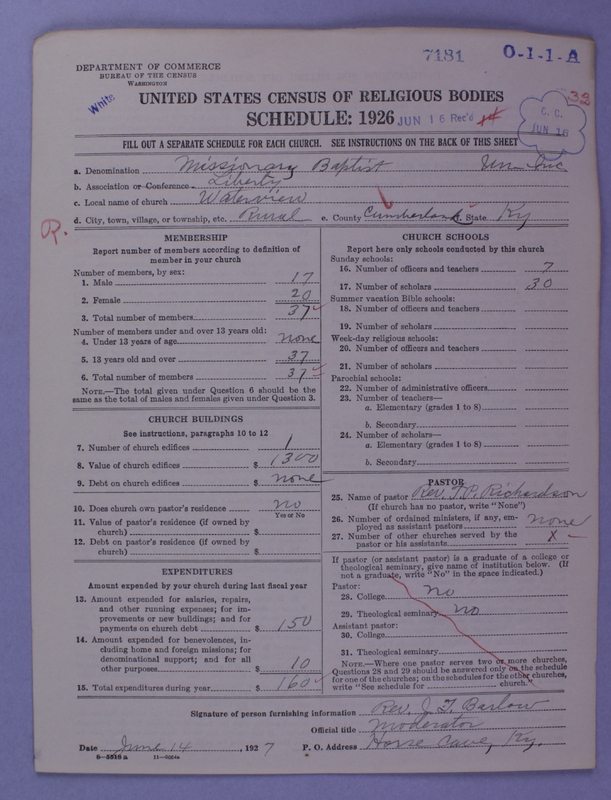 7181 O-1-1-A
DEPARTMENT OF COMMERCE
BUREAU OF THE CENSUS
WASHINGTON
White
UNITED STATES CENSUS OF RELIGIOUS BODIES
32
SCHEDULE: 1926 JUN 16 Rec'd
C. C.
JUN 16
FILL OUT A SEPARATE SCHEDULE FOR EACH CHURCH. SEE INSTRUCTIONS ON THE BACK OF THIS SHEET
a. Denomination Missionary Baptist Un. Inc
b. Association or Conference Liberty
c. Local name of church Waterview
d. City, town, village, or township, etc. Rural e. County Cumberland f. State Ky
R.
MEMBERSHIP
Report number of members according to definition of
member in your church
Number of members, by sex:
1. Male 17
2. Female 20
3. Total number of members 37
Number of members under and over 13 years old:
4. Under 13 years of age none
5. 13 years old and over 37
6. Total number of members 37
NOTE.—The total given under Question 6 should be the
same as the total of males and females given under Question 3.
CHURCH BUILDINGS
See instructions, paragraphs 10 to 12
7. Number of church edifices 1
8. Value of church edifices $ 1300
9. Debt on church edifices $ none
10. Does church own pastor's residence no
Yes or No
11. Value of pastor's residence (if owned by
church) $
12. Debt on pastor's residence (if owned by
church) $
EXPENDITURES
Amount expended by your church during last fiscal year
13. Amount expended for salaries, repairs,
and other running expenses; for im-
provements or new buildings; and for
payments on church debt $ 150
14. Amount expended for benevolences, in-
cluding home and foreign missions; for
denominational support; and for all
other purposes $ 10
15. Total expenditures during year $ 160
CHURCH SCHOOLS
Report here only schools conducted by this church
Sunday schools:
16. Number of officers and teachers 7
17. Number of scholars 30
Summer vacation Bible schools:
18. Number of officers and teachers
19. Number of scholars
Week-day religious schools:
20. Number of officers and teachers
21. Number of scholars
Parochial schools:
22. Number of administrative officers
23. Number of teachers—
a. Elementary (grades 1 to 8)
b. Secondary
24. Number of scholars—
a. Elementary (grades 1 to 8)
b. Secondary
PASTOR
25. Name of pastor Rev. T. P. Richardson
(If church has no pastor, write "None")
26. Number of ordained ministers, if any, em-
ployed as assistant pastors none
27. Number of other churches served by the
pastor or his assistants X
If pastor (or assistant pastor) is a graduate of a college or
theological seminary, give name of institution below. (If
not a graduate, write "No" in the space indicated.)
Pastor:
28. College no
29. Theological seminary no
Assistant pastor:
30. College
31. Theological seminary
NOTE.—Where one pastor serves two or more churches,
Questions 28 and 29 should be answered only on the schedule
for one of the churches; on the schedules for the other churches,
write "See schedule for church."
Signature of person furnishing information Rev. J. T. Barlow
Official title Moderator
Date June 14, 1927 P. O. Address Horse Cave, Ky.